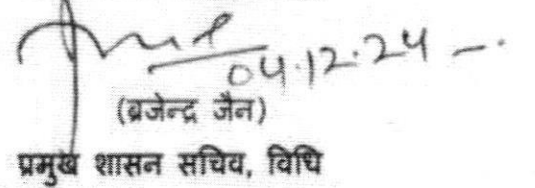 04.12.24
(ब्रजेन्द्र जैन)
प्रमुख शासन सचिव, विधि